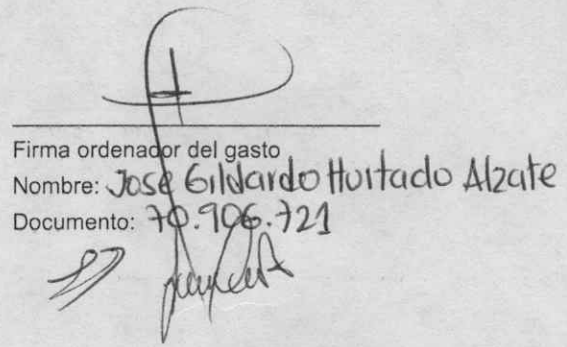 Firma ordenador del gasto
Nombre: José Gildardo Hurtado Alzate
Documento: 70.906.721